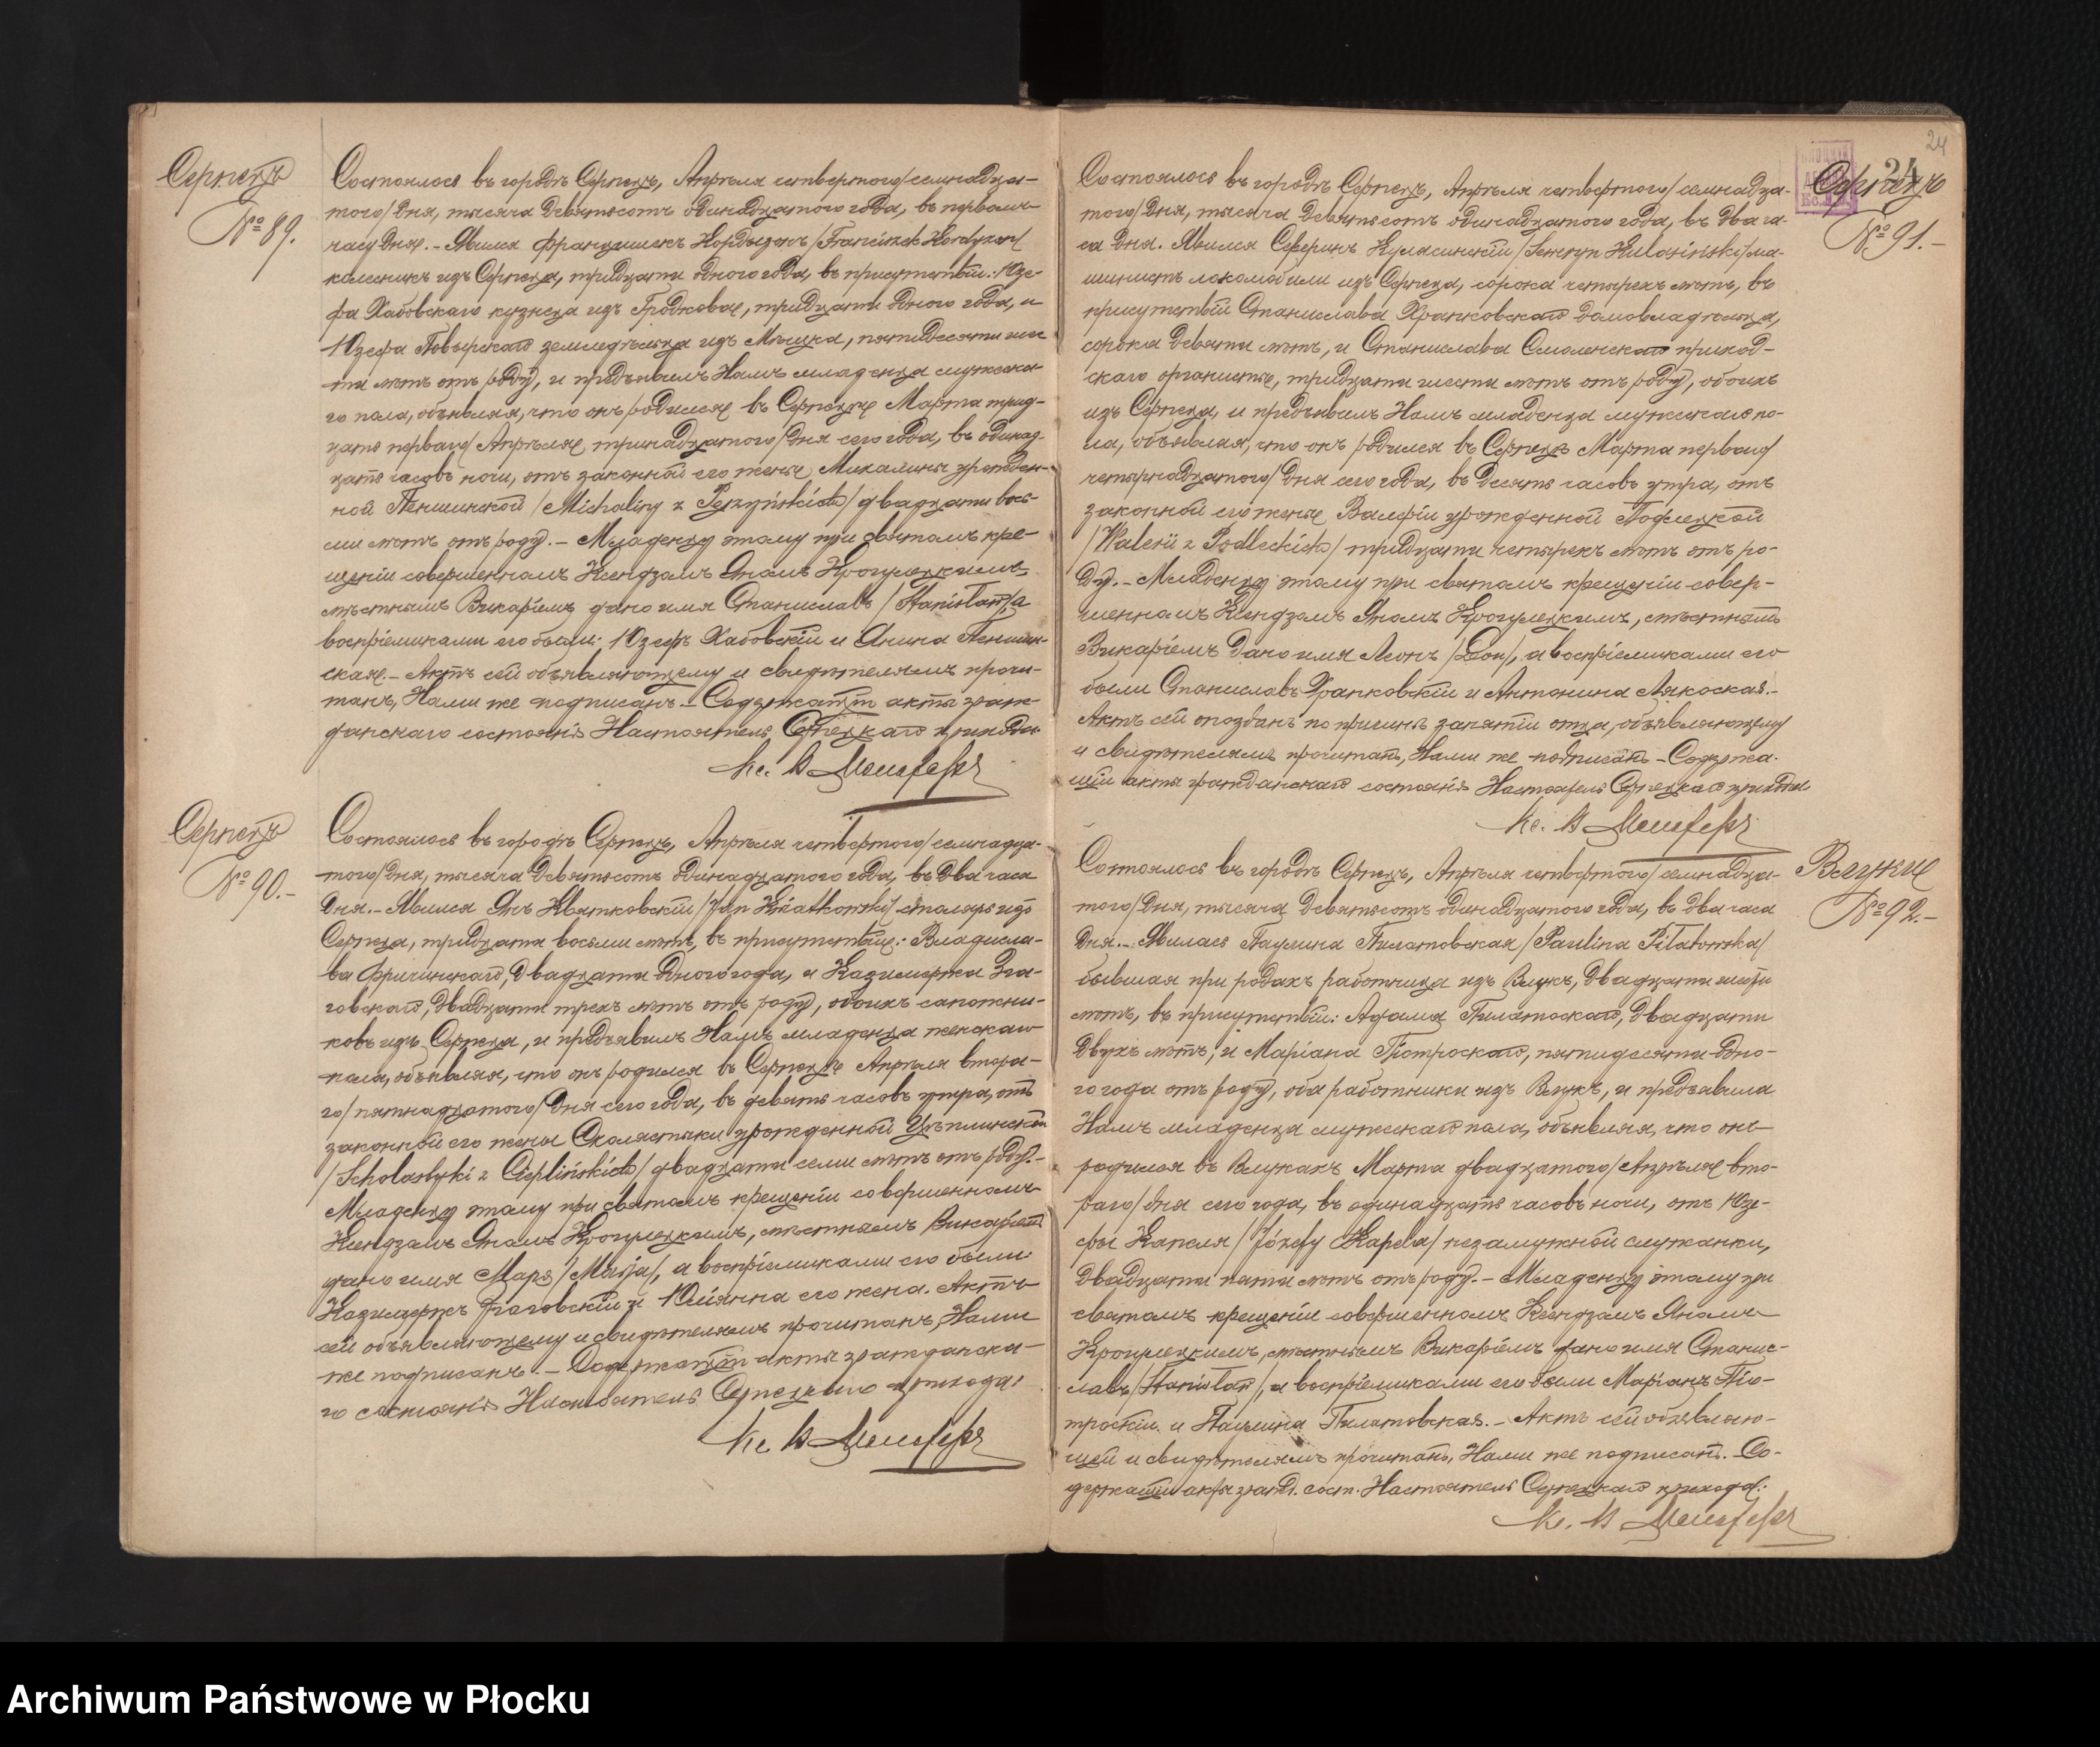 Серпецъ
№ 89.
Состоялось въ городѣ Серпецѣ, Апрѣля четвертого/семнадца-
того/дня, тысяча девятьсотъ одинадцатого года, въ первомъ
часу дня. - Явился Францишекъ Кордызонъ /Franciszek Kordyzon/
колесникъ изъ Серпеца, тридцати одного года, въ присутствіи: Юзе-
фа Хабовскаго кузнеца изъ Гродкова, тридцати одного года, и
Юзефа земледѣльца изъ пятидесяти шес-
ти лѣтъ отъ роду, и предъявилъ Намъ младенца мужска-
го пола, объявляя, что онъ родился въ Серпецѣ Марта трид-
цать перваго/Апрѣля тринадцатого/дня сего года, въ одинад-
цать часовъ ночи, отъ законной его жены Михалины урожден-
ной /Michaliny z двадцати вось-
ми лѣтъ отъ роду. - Младенцу этому при святомъ кре-
щеніи совершенномъ Ксендзомъ Яномъ
мѣстнымъ Викаріемъ дано имя Станиславъ /Stanisław/, а
воспріемниками его были: Юзефъ Хабовскій и Янина
ская. - Актъ сей объявляющему и свидѣтелямъ прочи-
танъ, Нами же подписанъ. - Содержащій акты граж-
данскаго состоянія Настоятель Серпецкаго прихода
Кс. В
Серпецъ
№ 90. -
Состоялось въ городѣ Серпецѣ, Апрѣля четвертого/семнадца-
того/дня, тысяча девятьсотъ одинадцатого года, въ два часа
дня. - Явился Янъ Квятковскій /Jan Kwiatkowski/ столяръ изъ
Серпеца, тридцати восьми лѣтъ, въ присутствіи: Владисла-
ва двадцати одного года, и Казимержа Зга-
говскаго, двадцати трехъ лѣтъ отъ роду, обоихъ сапожни-
ковъ изъ Серпеца, и предъявилъ Намъ младенца женскаго
пола, объявляя, что онъ родился въ Серпецѣ Апрѣля втора-
го/пятнадцатого/дня сего года, въ девять часовъ утра, отъ
законной его жены Схолястыки урожденной Цѣплинской
/Scholastyki z Cieplińskich/ двадцати семи лѣтъ отъ роду. -
Младенцу этому при святомъ крещеніи совершенномъ
Ксендзомъ Яномъ мѣстнымъ Викаріемъ
дано имя Марія /Marja/, а воспріемниками его были:
Казимержъ Згаговскій и Юліянна его жена. Актъ
сей объявляющему и свидѣтелямъ прочитанъ, Нами
же подписанъ. - Содержащій акты гражданска-
го состоянія Настоятель Серпецкаго прихода:
Кс. В
24
24
Серпецъ
№ 91. -
Состоялось въ городѣ Серпецѣ, Апрѣля четвертого/семнадца-
того/дня, тысяча девятьсотъ одинадцатого года, въ два ча-
са дня. Явился Северинъ Кулясинскій /Seweryn Kulasiński/ ма-
шинистъ локомобили изъ Серпеца, сорока четырехъ лѣтъ, въ
присутствіи Станислава Хранковскаго домовладѣльца,
сорока девяти лѣтъ, и Станислава Смоленскаго приход-
скаго органисты, тридцати шести лѣтъ отъ роду, обоихъ
изъ Серпеца, и предъявилъ Намъ младенца мужескаго по-
ла, объявляя, что онъ родился въ Серпецѣ Марта перваго/
четырнадцатого/дня сего года, въ десять часовъ утра, отъ
законной его жены Валеріи урожденной Подлецкой
/Walerii z Podleckich/ тридцати четырехъ лѣтъ отъ ро-
ду. - Младенцу этому при святомъ крещеніи совер-
шенномъ Ксендзомъ Яномъ мѣстнымъ
Викаріемъ дано имя Леонъ /Leon/, а воспріемниками его
были Станиславъ Хранковскій и Антонина
Актъ сей опозданъ по причинѣ занятій отца, объявляющему
и свидѣтелямъ прочитанъ, Нами же подписанъ - Содержа-
щій акты гражданскаго состоянія Настоятель Серпецкаго прихода
Кс. В
Влуки
№ 92. -
Состоялось въ городѣ Серпецѣ, Апрѣля четвертого/семнадца-
того/дня, тысяча девятьсотъ одинадцатого года, въ два часа
дня. - Явилась Паулина Пилатовская /Paulina Piłatowska/
бывшая при родахъ работница изъ Влукъ, двадцати шести
лѣтъ, въ присутствіи: Адама двадцати
двухъ лѣтъ, и Маріана пятидесяти одно-
го года отъ роду, оба работники изъ Влукъ, и предъявила
Намъ младенца мужескаго пола, объявляя, что онъ
родился въ Влукахъ Марта двадцатого/Апрѣля вто-
раго/дня сего года, въ одинадцать часовъ ночи, отъ Юзе-
фы Капеля /Józefy Kapela/ незамужной служанки,
двадцати пяти лѣтъ отъ роду. - Младенцу этому при
святомъ крещеніи совершенномъ Ксендзомъ Яномъ
мѣстнымъ Викаріемъ дано имя Станис-
лавъ /Stanisław/, а воспріемниками его были Маріанъ Піо-
троскій и Паулина Пилатовская. - Актъ сей объявляю-
щей и свидѣтелямъ прочитанъ, Нами же подписанъ. - Со-
держащій акты гражд. сост. Настоятель Серпецкаго прихода:
Кс. В
Archiwum Państwowe w Płocku